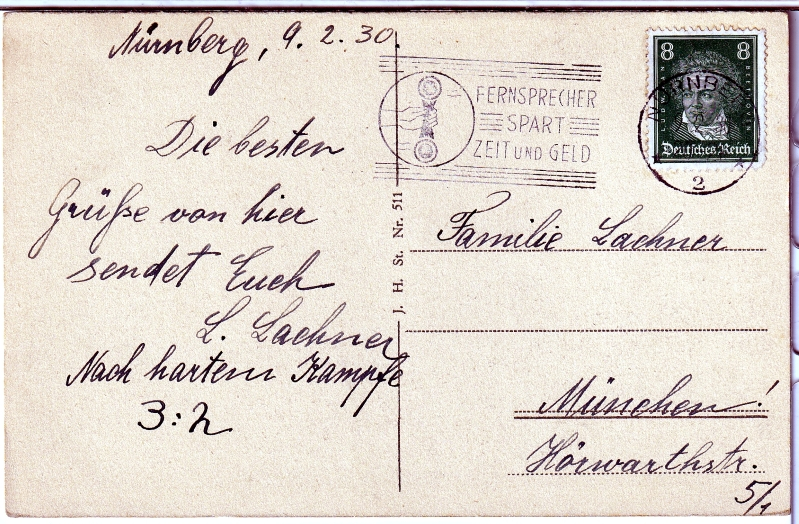 Nürnberg, 9.2.30.
Die besten
Grüße von hier
sendet Euch
L. Lachner
Nach hartem Kampfe
3:2
J. H. St. Nr. 511
FERNSPRECHER
SPART
ZEIT UND GELD
8 8
LUDWIG VAN BEETHOVEN
Deutsches Reich
NÜRNBERG
2
Familie Lachner
München!
Hörwarthstr.
5/1